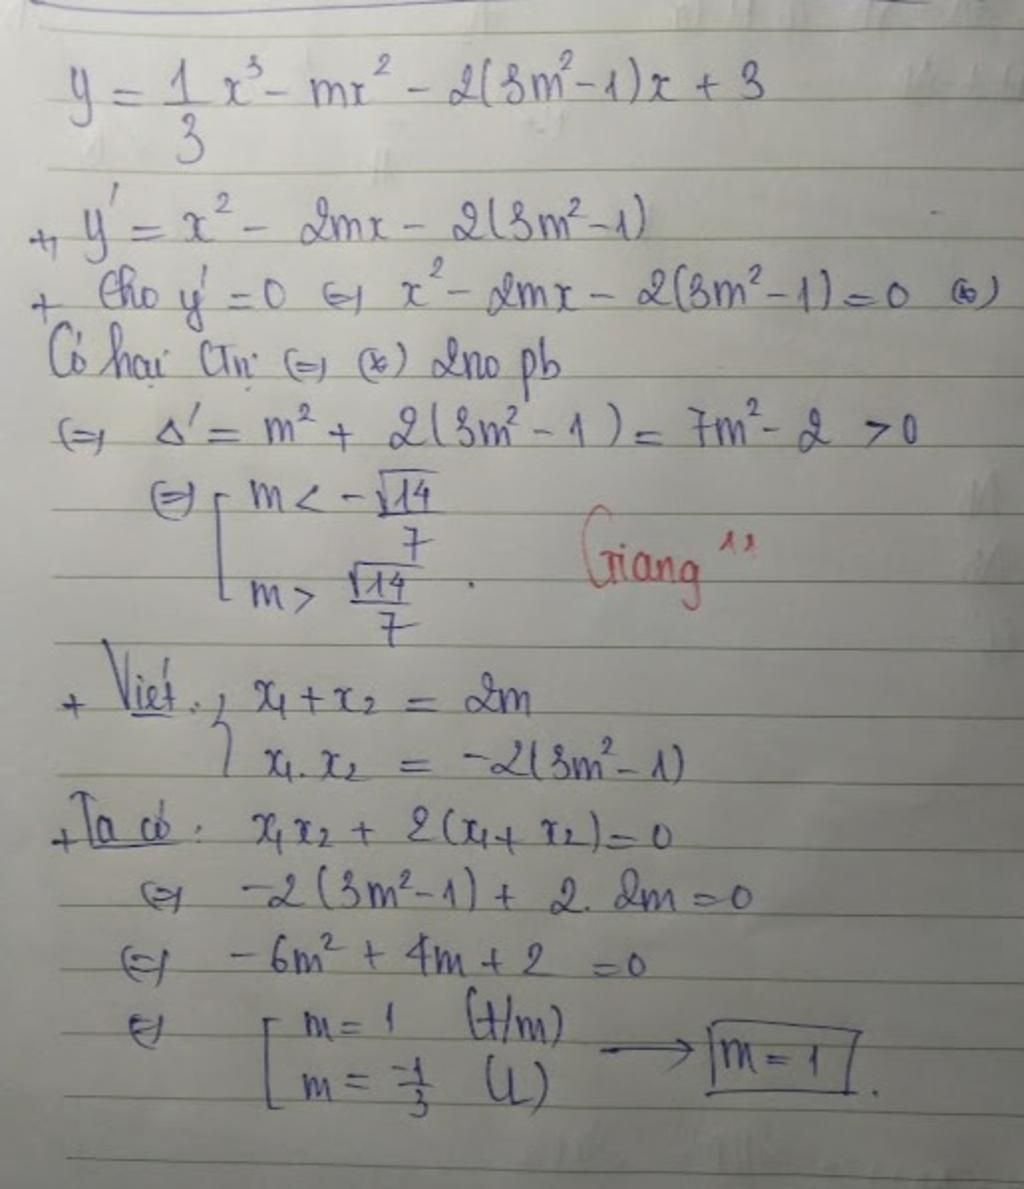 y = 1/3 x³ - mx² - 2(3m²-1)x + 3
+, y' = x² - 2mx - 2(3m²-1)
+ Cho y' = 0 ⇔ x² - 2mx - 2(3m²-1) = 0 (*)
Có hai CTrị ⇔ (*) 2no pb
⇔ Δ' = m² + 2(3m²-1) = 7m² - 2 > 0
⇔ [ m < -√14/7
m > √14/7 .
Giang
+ Viét: { x₁ + x₂ = 2m
x₁.x₂ = -2(3m²-1)
+ Ta có: x₁x₂ + 2(x₁ + x₂) = 0
⇔ -2(3m²-1) + 2.2m = 0
⇔ -6m² + 4m + 2 = 0
⇔ [ m = 1 (t/m) → m = 1 .
m = -1/3 (L)